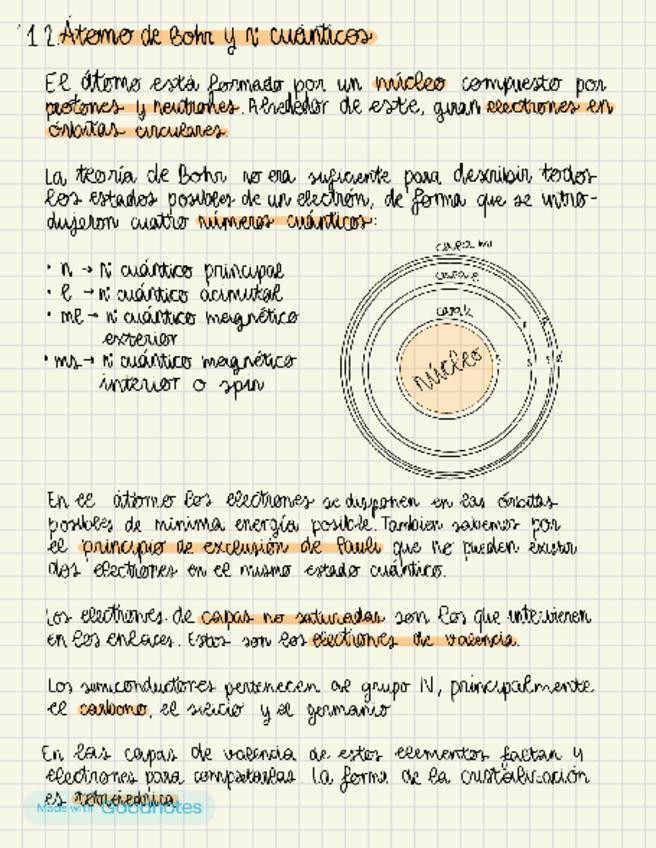 1.2. Átomo de Bohr y nº cuánticos
El átomo está formado por un núcleo compuesto por
protones y neutrones. Alrededor de este, giran electrones en
órbitas circulares.
La teoría de Bohr no era suficiente para describir todos
los estados posibles de un electrón, de forma que se intro-
dujeron cuatro números cuánticos:
• n → nº cuántico principal
• l → nº cuántico acimutal
• ml → nº cuántico magnético
exterior
• ms → nº cuántico magnético
interior o spin
capa m
capa l
capa k
núcleo
s
s
p
s
p
d
En el átomo los electrones se disponen en las órbitas
posibles de mínima energía posible. Tambien sabemos por
el principio de exclusión de Pauli que no pueden existir
dos electrones en el mismo estado cuántico.
Los electrones de capas no saturadas son los que intervienen
en los enlaces. Estos son los electrones de valencia.
Los semiconductores pertenecen al grupo IV, principalmente
el carbono, el silicio y el germanio
En las capas de valencia de estos elementos faltan 4
electrones para completarlas. La forma de la cristalización
es tetraédrica
Made with Goodnotes